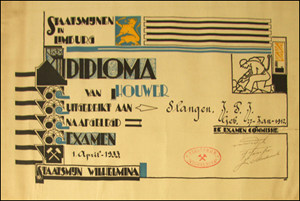 STAATSMIJNEN
IN
LIMBURG
DIPLOMA
VAN HOUWER
UITGEREIKT AAN Slangen, J. P. J.
Geb. 27-Jan-1912
NA AFGELEGD
EXAMEN
1. April-1933.
DE EXAMEN COMMISSIE
STAATSMIJN WILHELMINA